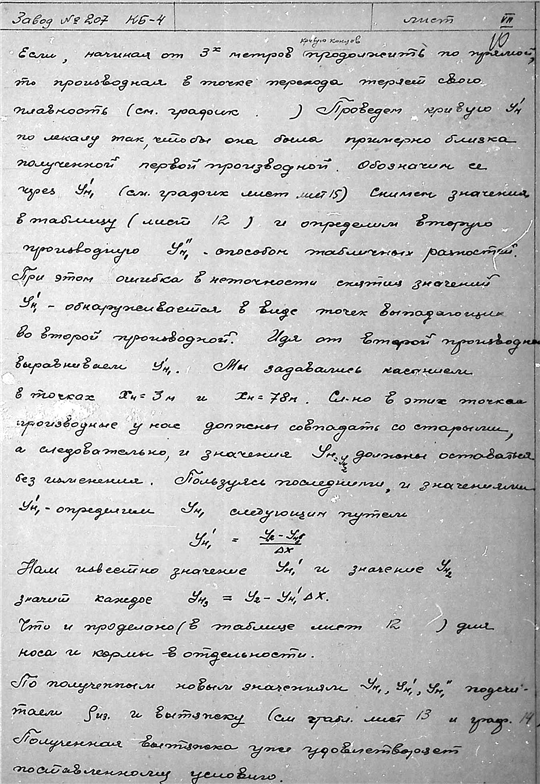 Завод № 207 КБ-4 лист VII
10
кривую концов
Если, начиная от 3х метров продолжить по прямой,
то производная в точке перехода теряет свою
плавность (см. график ) Проведем кривую Yн'
по лекалу так, чтобы она была примерно близка
полученной первой производной. Обозначим ее
через Yн₁' (см. график лист 15) Снимем значения
в таблицу (лист 12) и определим вторую
производную Yн₁'' - способом табличных разностей.
При этом ошибка в неточности снятия значений
Yн₁' - обнаруживается в виде точек выпадающих
во второй производной. Идя от второй производной
выравниваем Yн₁'. Мы задавались касанием
в точках Xн = 3м и Xн = 78м. Сл-но в этих точках
производные у нас должны совпадать со старыми,
а следовательно, и значения должны оставаться
без изменения. Пользуясь последними, и значениями
Yн₁' - определим Yн₁ следующим путем
Yн₁' = ΔX
Нам известно значение Yн₁' и значение Yн₂
значит каждое Yн₃ = Y₂ - Yн₁' ΔX.
Что и проделано (в таблице лист 12 ) для
носа и кормы в отдельности.
По полученным новым значениям Yн₁, Yн₁', Yн₁'' подсчи-
таем ρиз. и вытяжку (см табл. лист 13 и граф. 14
Полученная вытяжка уже удовлетворяет
поставленному условию.